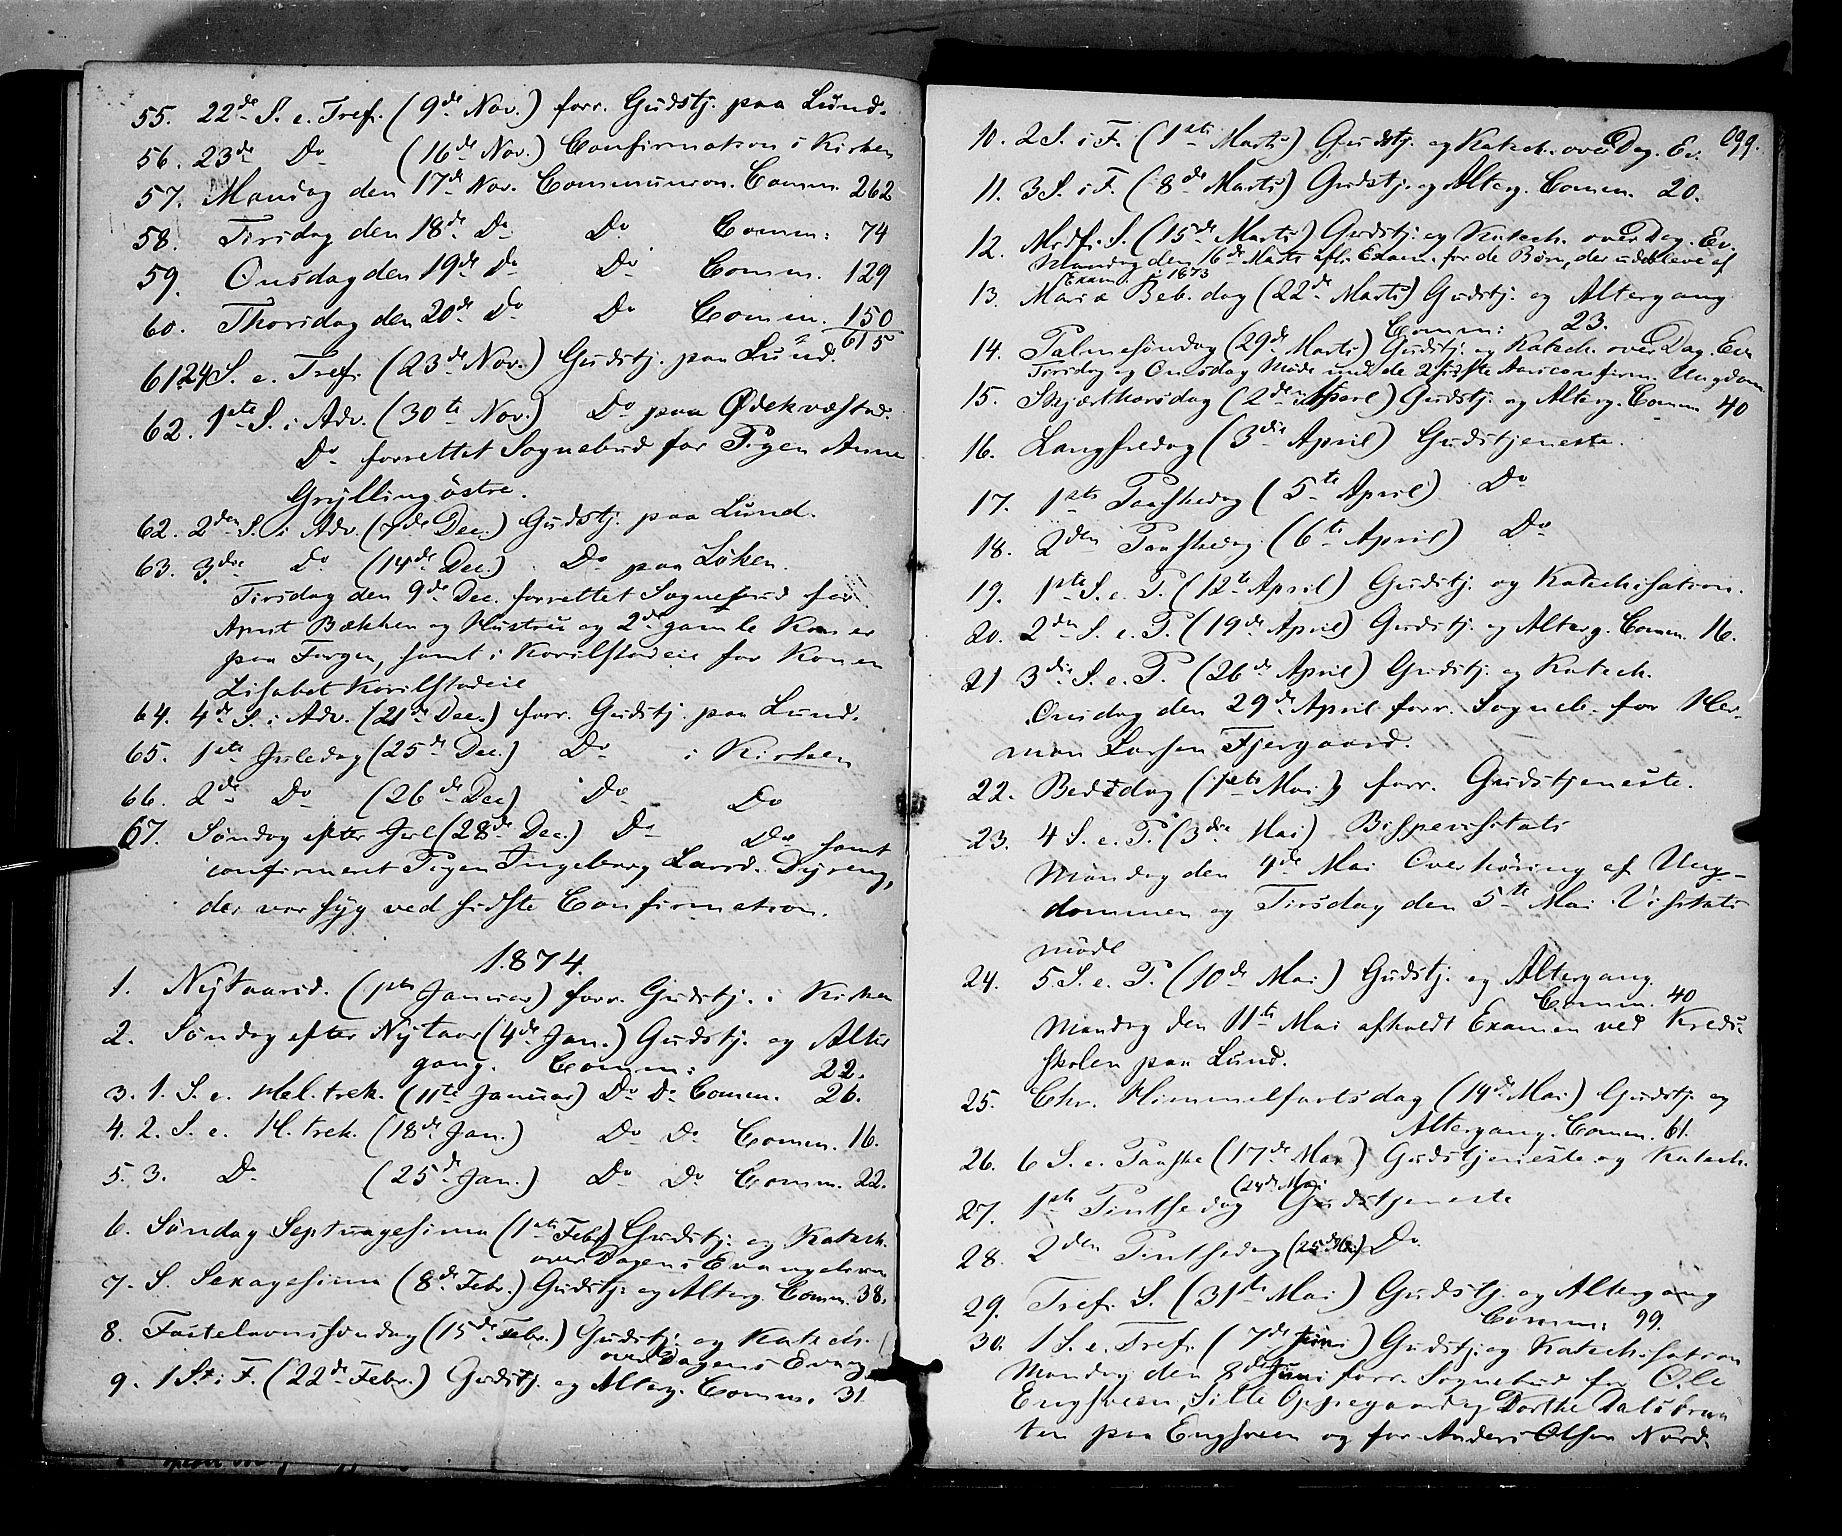 55. 22de S. e. Tref. (9de Nov.) forr. Gudstj. paa Lund.
56. 23de Do (16de Nov.) Confirmation i Kirken
57. Mandag den 17de Nov. Communion. Comm. 262
58. Tirsdag den 18de Do Do Comm: 74
59. Onsdag den 19de Do Do Comm. 129
60. Thorsdag den 20de Do Do Comm. 150
615
61 24 S. e. Tref. (23de Nov.) Gudstj. paa Lund.
62. 1ste S. i Adv. (30te Nov.) Do paa Ødekvæstad.
Do forrettet Sognebud for Pigen Anne
Grylling østre.
62. 2den S. i Adv. (7de Dec.) Gudstj. paa Lund.
63. 3die Do (14de Dec.) Do paa Løken.
Tirsdag den 9de Dec. forrettet Sognebud for
Bækken og Hustru og 2de gamle Koner
paa samt i Korilstadeie for Konen
Lisabet Korilstadeie
64. 4de S. i Adv. (21de Dec.) forr. Gudstj. paa Lund.
65. 1ste Juledag (25de Dec.) Do i Kirken
66. 2de Do (26de Dec) Do Do
67. Søndag efter Jul (28de Dec.) Do Do samt
confirmeret Pigen Ingeborg Larsd. Dyreng,
der var syg ved sidste Confirmation.
1874.
1. Nytaarsd. (1ste Januar) forr. Gudstj. i Kirken
2. Søndag efter Nytaar (4de Jan.) Gudstj. og Alter
gang. Comm: 22.
3. 1. S. e. Hel. trek. (11te Januar) Do Do Comm. 26.
4. 2. S. e. H. trek. (18de Jan.) Do Do Comm. 16.
5. 3. Do (25de Jan.) Do Do Comm. 22.
6. Søndag Septuagesima (1ste Febr) Gudstj. og Katech.
over Dagens Evangelium
7. S. Sexagesima (8de Febr.) Gudstj. og Alterg. Comm. 38.
8. Fastelavnssøndag (15de Febr.) Gudstj. og Katech.
over Dagens Evang.
9. 1 S. i F. (22de Febr.) Gudstj. og Alterg. Comm. 31
099.
10. 2 S. i F. (1ste Marts) Gudstj. og Katech. over Dag. Ev.
11. 3 S. i F. (8de Marts) Gudstj. og Alterg. Comm. 20.
12. Midf. S. (15de Marts) Gudstj. og Katech. over Dag. Ev.
Mandag den 16de Marts Exam. for de Børn, der udebleve af
Exam. i 1873
13. Mariæ Beb. dag (22de Marts) Gudstj. og Altergang
Comm: 23.
14. Palmesøndag (29de Marts) Gudstj. og Katech. over Dag. Ev.
Tirsdag og Onsdag Møde med de 2 sidste Aars confirm. Ungdom
15. Skjærthorsdag (2de April) Gudstj. og Alterg. Comm 40
16. Langfredag (3die April) Gudstjeneste.
17. 1ste Paaskedag (5te April) Do
18. 2den Paaskedag (6te April) Do
19. 1ste S. e. P. (12te April) Gudstj. og Katechisation.
20. 2den S. e. P. (19de April) Gudstj. og Alterg. Comm. 16.
21 3die S. e. P. (26de April) Gudstj. og Katech.
Onsdag den 29de April forr. Sogneb. for Her-
man Larsen Fjergaard.
22. Bededag (1ste Mai) forr. Gudstjeneste.
23. 4 S. e. P. (3die Mai) Bispevisitats
Mandag den 4de Mai Overhøring af Ung-
dommen og Tirsdag den 5te Mai Visitats
møde
24. 5. S. e. P. (10de Mai) Gudstj. og Altergang.
Comm. 40
Mandag den 11te Mai afholdt Examen ved Kreds-
skolen paa Lund.
25. Chr. Himmelfartsdag (14de Mai) Gudstj. og
Altergang. Comm. 61.
26. 6 S. e. Paaske (17de Mai) Gudstjeneste og Katech.
27. 1ste Pintsedag (24de Mai) Gudstjeneste
28. 2den Pintsedag (25de Mai) Do
29. Tref. S. (31te Mai) Gudstj. og Altergang
Comm: 99.
30. 1 S. e. Tref. (7de Juni) Gudstj. og Katechisation
Mandag den 8de Juni forr. Sognebud for Ole
Engsveen, Sille Oppegaard og Dorthe Dalsbraa
ten paa Engsveen og for Anders Olsen Nord-